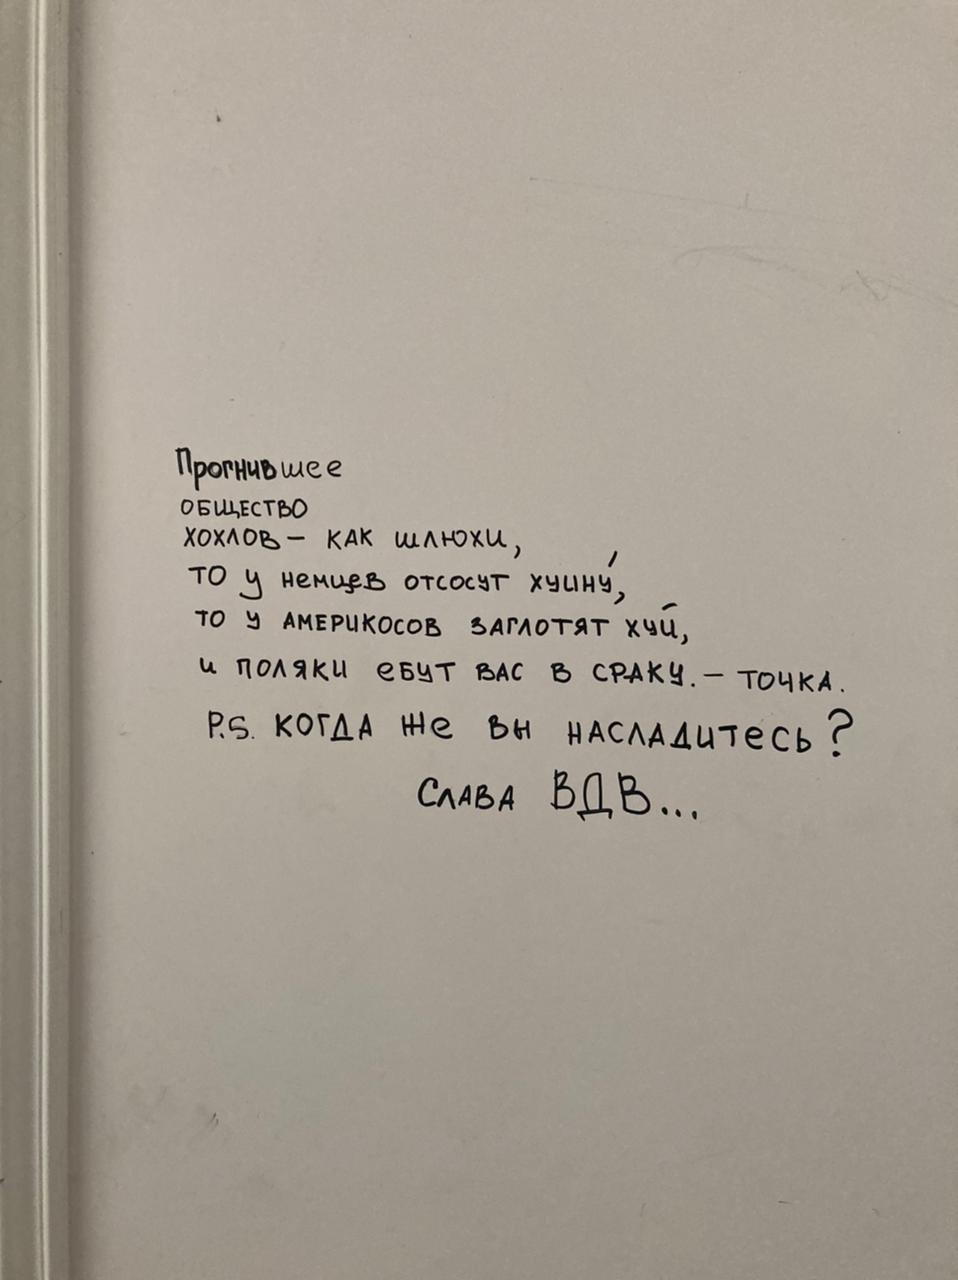 Прогнившее
ОБЩЕСТВО
ХОХЛОВ – КАК ШЛЮХИ,
ТО У НЕМЦЕВ ОТСОСУТ ХУИНУ́,
ТО У АМЕРИКОСОВ ЗАГЛОТЯТ ХУЙ,
И ПОЛЯКИ ЕБУТ ВАС В СРАКУ. – ТОЧКА.
P.S. КОГДА ЖЕ ВЫ НАСЛАДИТЕСЬ?
СЛАВА ВДВ...